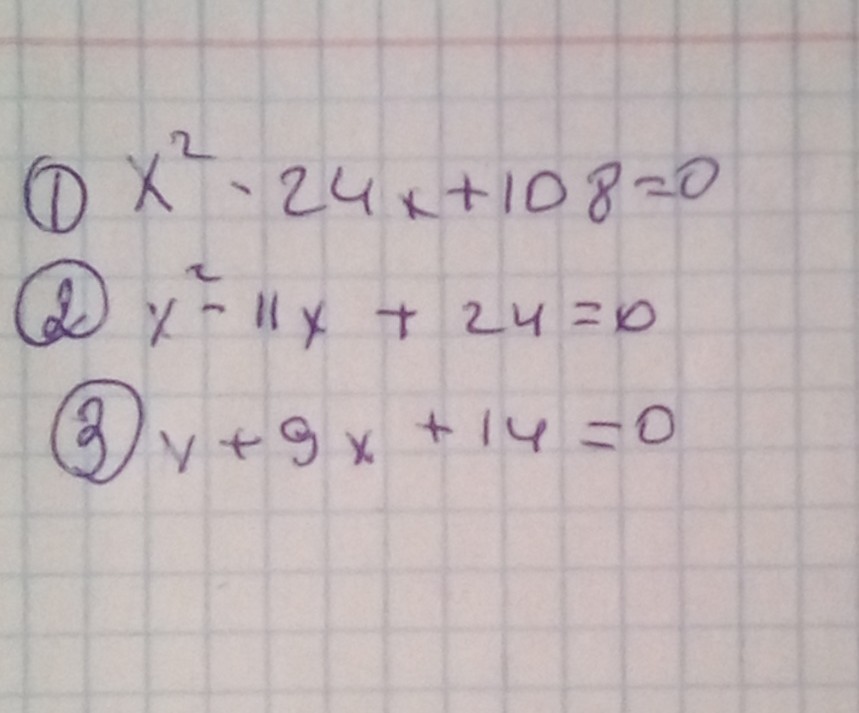 ① x² - 24x + 108 = 0
② x² - 11x + 24 = 0
③ x + 9x + 14 = 0